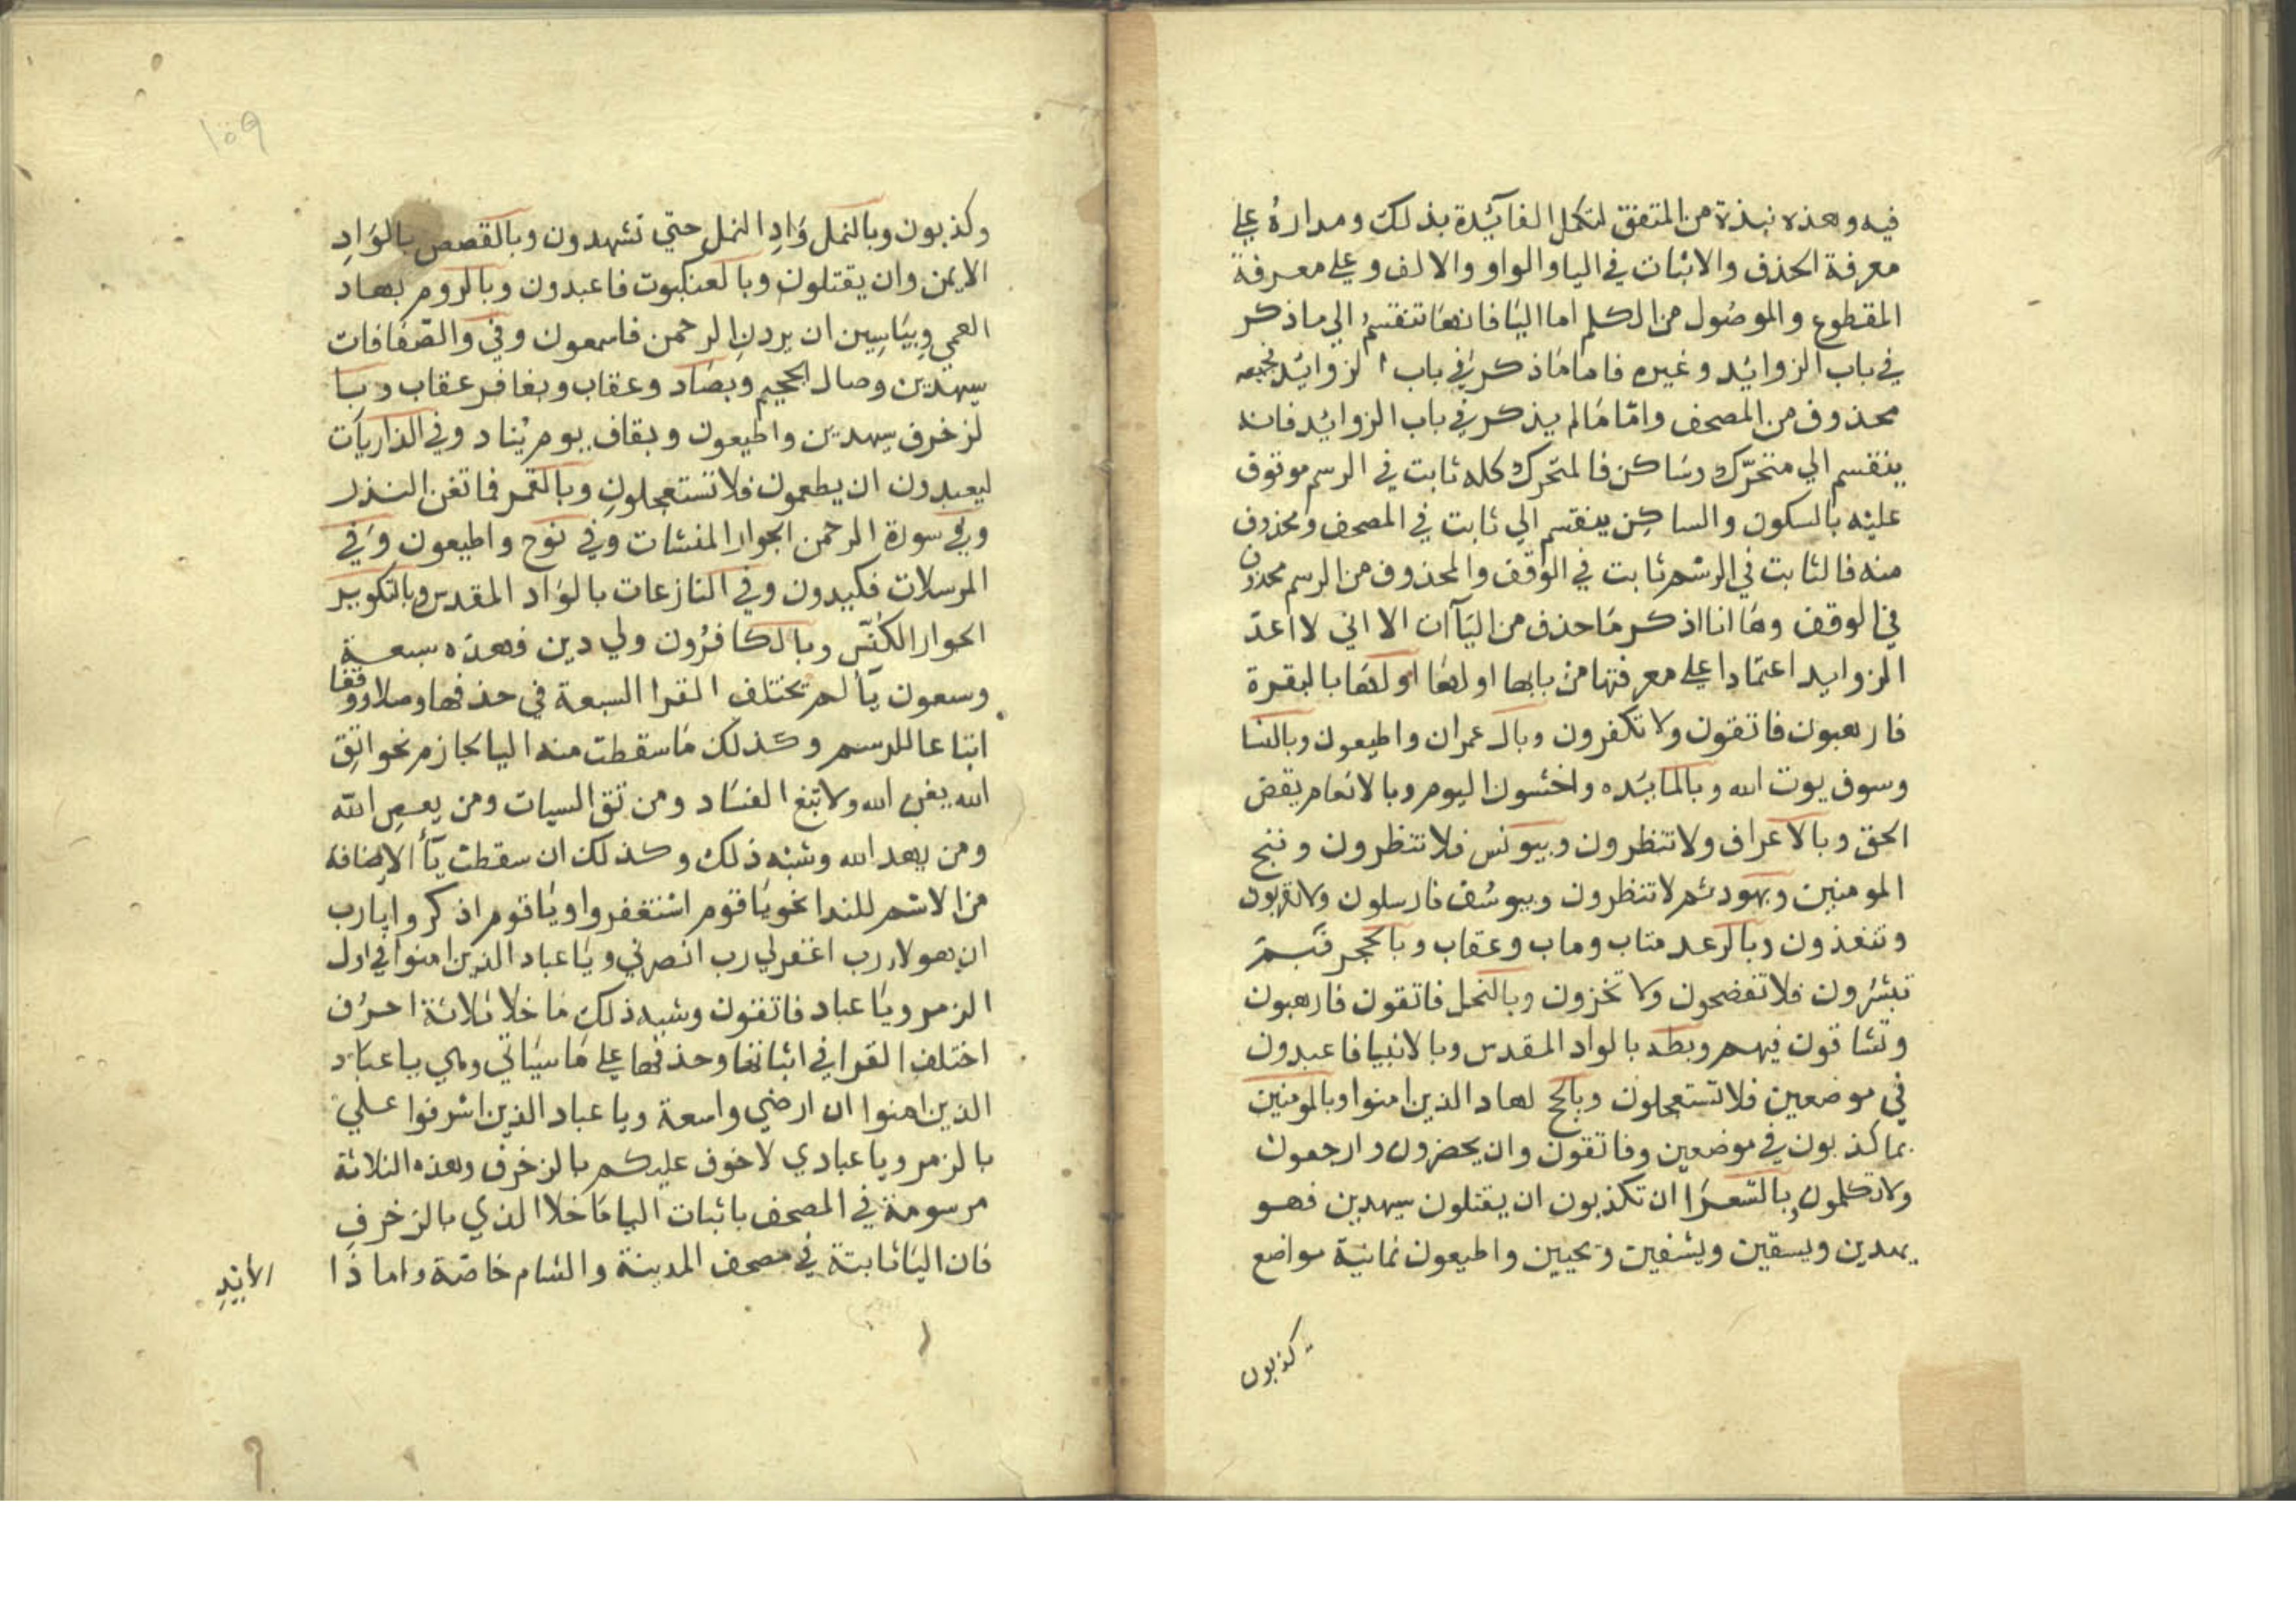 فيه وهذه نبذة من المتفق لتكمل الفائدة بذلك ومداره علي
معرفة الحذف والاثبات في اليا والواو والالف وعلي معرفة
المقطوع والموصول من الكلم اما اليا فانها تنقسم الي ما ذكر
في باب الزوائد وغيره فاما ما ذكر في باب الزوائد فجميعه
محذوف من المصحف واما ما لم يذكر في باب الزوائد فانه
ينقسم الي متحرّك وساكن فالمتحرك كله ثابت في الرسم موقوف
عليه بالسكون والساكن ينقسم الي ثابت في المصحف ومحذوف
منه فالثابت في الرسم ثابت في الوقف والمحذوف من الرسم محذوف
في الوقف وها انا اذكر ما حذف من اليآات الا اني لا اعدّ
الزوايد اعتمادا علي معرفتها من بابها اولها اولها بالبقرة
فارهبون فاتقون ولا تكفرون وبال عمران واطيعون وبالنسا
وسوف يوت الله وبالمائده واخشون اليوم وبالانعام يقض
الحق وبالاعراف ولا تنظرون وبيونس فلا تنظرون وننج
المومنين وبهود ثم لا تنظرون وبيوسف فارسلون ولا تقربون
وتفندون وبالرعد متاب وماب وعقاب وبالحجر فبم
تبشرون فلا تفضحون ولا تخزون وبالنحل فاتقون فارهبون
وتشاقون فيهم وبطه بالواد المقدس وبالانبيا فاعبدون
في موضعين فلا تستعجلون وبالحج لهاد الذين امنوا وبالمومنين
بما كذبون في موضعين وفاتقون وان يحضرون وارجعون
ولا تكلمون وبالشعرا ان تكذبون ان يقتلون سيهدين فهو
يهدين ويسقين ويشفين ويحيين واطيعون ثمانية مواضع
كذبون
١٥٩
وكذبون وبالنمل وَادِ النمل حتي تشهدون وبالقصص بالوَادِ
الايمن وان يقتلون وبالعنكبوت فاعبدون وبالروم بهاد
العمي وبياسين ان يردنِ الرحمن فاسمعون وفي والصّافات
سيهدين وصال الجحيم وبصاد وعقاب وبغافر عقاب وبا
لزخرف سيهدين واطيعون وبقاف يوم يُناد وفي الذاريات
ليعبدون ان يطعمون فلا تستعجلونِ وبالقمر فما تغن النذر
وفي سورة الرحمن الجوار المنشات وفي نوح واطيعون وفي
المرسلات فكيدون وفي النازعات بالوَاد المقدس وبالتكوير
الجوار الكُنّس وبالكافرُون ولي دين فهذه سبعة
وسعون يآ لم تختلف القرا السبعة في حذفها وصلا ووقفا
اتباعا للرسم وكذلك ما سقطت منه اليا لجازم نحو اتقِ
الله يغن الله ولا تبغ الفساد ومن تق السيات ومن يعصِ الله
ومن يهد الله وشبه ذلك وكذلك ان سقطت يآ الاضافة
من الاسم للندا نحو يا قوم استغفروا ويا قوم اذكروا يا رب
ان هولا رب اغفر لي رب انصرني ويا عباد الذين امنوا في اول
الزمر ويا عباد فاتقون وشبه ذلك ما خلا ثلاثة احرُف
اختلف القرا في اثباتها وحذفها علي ما سياتي وهي يا عباد
الذين امنوا ان ارضي واسعة ويا عباد الذين اسرفوا علي
بالزمر ويا عبادي لا خوف عليكم بالزخرف وهذه الثلاثة
مرسومة في المصحف باثبات اليا ما خلا الذي بالزخرفِ
فان اليا ثابتة في مصحف المدينة والشام خاصّة واما ذا
الأيْدِ